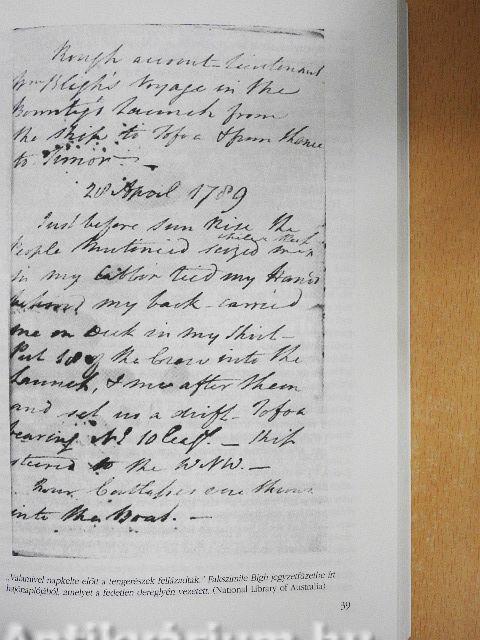 Rough account - Lieutenant
Wm Bligh's Voyage in the
Bounty's Launch from
the ship to Tofoa & from thence
to Timor -
28 April 1789
Just before sun rise the
People Mutinied seized me
while asleep
in my Cabbin tied my Hands
behind my back - carried
me on Deck in my Shirt -
Put 18 of the Crew into the
Launch, & me after them
and set us a drift - Tofoa
bearing NE 10 leags. - Ship
steered to the WNW. -
Four Cutlasses were thrown
into the Boat. -
„Valamivel napkelte előtt a tengerészek fellázadtak.” Fakszimile Bligh jegyzetfüzetbe írt
hajónaplójából, amelyet a fedetlen dereglyén vezetett. (National Library of Australia)
39
Antikvárium.hu